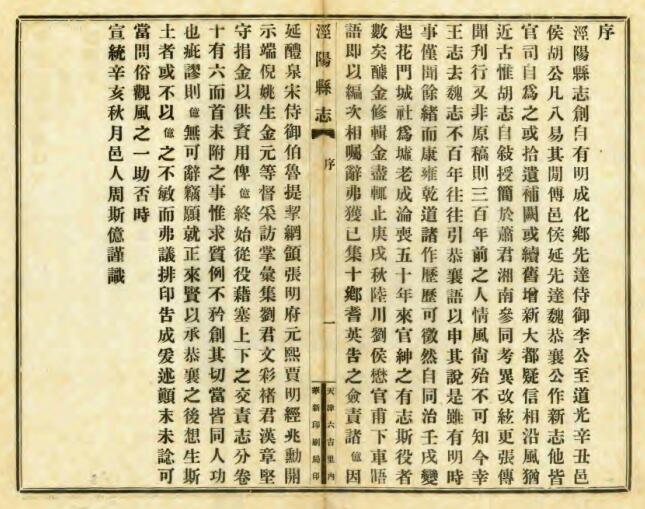 序
涇陽縣志創自有明成化鄉先達侍御李公至道光辛丑邑
侯胡公凡八易其間傳邑侯延先達魏恭襄公作新志他皆
官司自爲之或拾遺補闕或續舊增新大都疑信相沿風猶
近古惟胡志自敍授簡於蕭君湘南參同考異改絃更張傳
聞刊行又非原稿則三百年前之人情風尙殆不可知今幸
王志去魏志不百年往往引恭襄語以申其說是雖有明時
事僅聞餘緒而康雍乾道諸作歷歷可徵然自同治壬戌變
起花門城社爲墟老成淪喪五十年來官紳之有志斯役者
數矣醵金修輯金盡輒止庚戌秋陸川劉侯懋官甫下車語
語即以編次相囑辭弗獲已集十鄉耆英告之僉責諸億因
延醴泉宋侍御伯魯提挈綱領張明府元熙賈明經兆勳開
示端倪姚生金元等督采訪掌彙集劉君文彩褚君漢章堅
守捐金以供資用俾億終始從役藉塞上下之交責志分卷
十有六而首末附之事惟求質例不矜創其切當皆同人功
也疵謬則億無可辭竊願就正來賢以承恭襄之後想生斯
土者或不以億之不敏而弗議排印告成爰述顛末未諗可
當問俗觀風之一助否時
宣統辛亥秋月邑人周斯億謹識
涇陽縣志
序
一
天津六吉里內
華新印刷局印